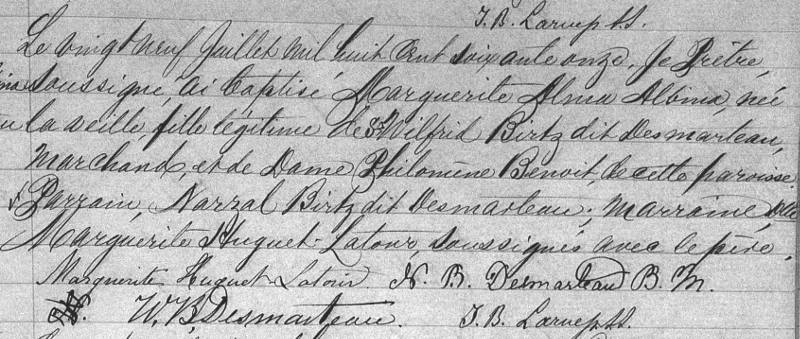 J. B. Larue ptr.
Le vingt neuf Juillet mil huit cent soixante onze, Je Prêtre
soussigné, ai baptisé, Marguerite Alma Albina, née
la veille, fille légitime de Sr Wilfrid Birtz dit Desmarteau,
marchand, et de Dame Philomène Benoit, de cette paroisse.
Parrain, Narzal Birtz dit Desmarteau; marraine, Dlle
Marguerite Huguet-Latour, soussignés avec le père,
Marguerite Huguet-Latour. N. B. Desmarteau B. M.
W. B. Desmarteau. J. B. Larue ptr.